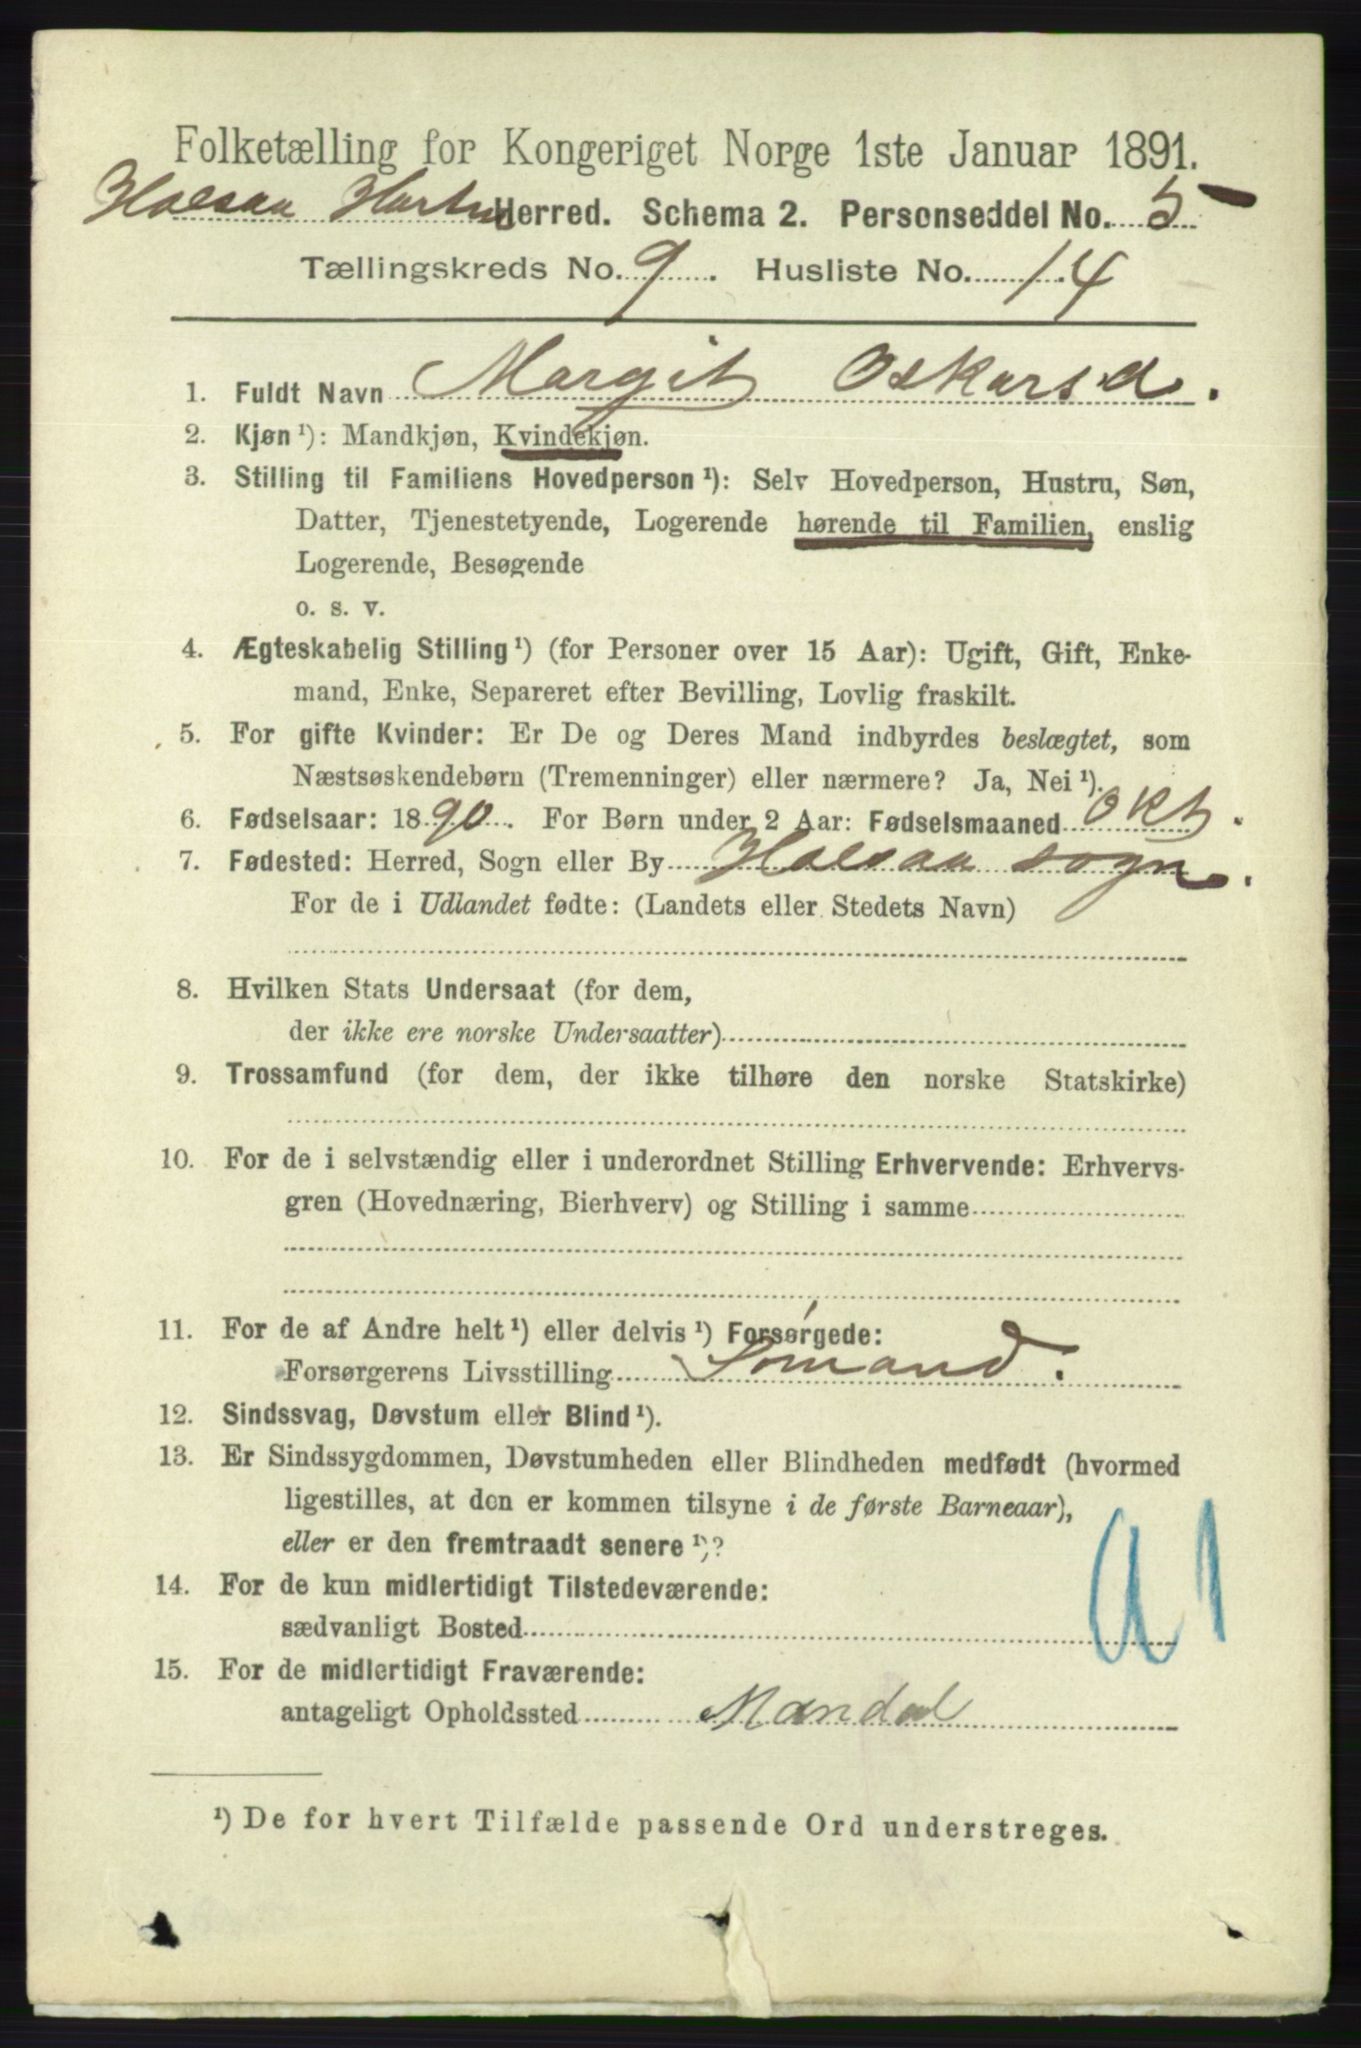 Folketælling for Kongeriget Norge 1ste Januar 1891.
Halsaa Hartm Herred. Schema 2. Personseddel No. 5
Tællingskreds No. 9. Husliste No. 14
1. Fuldt Navn Margit Oskarsd.
2. Kjøn ¹): Mandkjøn, Kvindekjøn.
3. Stilling til Familiens Hovedperson ¹): Selv Hovedperson, Hustru, Søn,
Datter, Tjenestetyende, Logerende hørende til Familien, enslig
Logerende, Besøgende
o. s. v.
4. Ægteskabelig Stilling ¹) (for Personer over 15 Aar): Ugift, Gift, Enke-
mand, Enke, Separeret efter Bevilling, Lovlig fraskilt.
5. For gifte Kvinder: Er De og Deres Mand indbyrdes beslægtet, som
Næstsøskendebørn (Tremenninger) eller nærmere? Ja, Nei ¹).
6. Fødselsaar: 1890. For Børn under 2 Aar: Fødselsmaaned Okt.
7. Fødested: Herred, Sogn eller By Halsaa sogn.
For de i Udlandet fødte: (Landets eller Stedets Navn)
8. Hvilken Stats Undersaat (for dem,
der ikke ere norske Undersaatter)
9. Trossamfund (for dem, der ikke tilhøre den norske Statskirke)
10. For de i selvstændig eller i underordnet Stilling Erhvervende: Erhvervs-
gren (Hovednæring, Bierhverv) og Stilling i samme
11. For de af Andre helt ¹) eller delvis ¹) Forsørgede:
Forsørgerens Livsstilling Sømand.
12. Sindssvag, Døvstum eller Blind ¹).
13. Er Sindssygdommen, Døvstumheden eller Blindheden medfødt (hvormed
ligestilles, at den er kommen tilsyne i de første Barneaar),
eller er den fremtraadt senere ¹)?
14. For de kun midlertidigt Tilstedeværende:
sædvanligt Bosted
15. For de midlertidigt Fraværende:
antageligt Opholdssted Mandal
a1
¹) De for hvert Tilfælde passende Ord understreges.